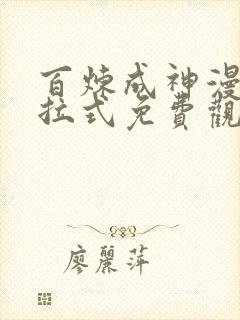 百炼成神漫
拉式免費觀
廖麗萍